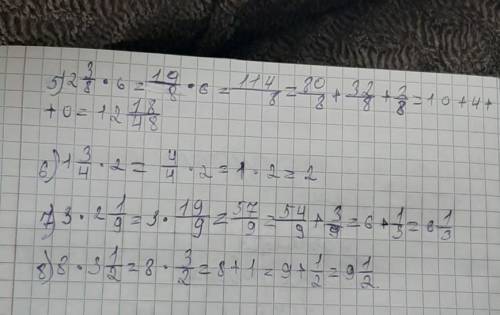 5) 2 3/8 · 6 = 19/8 · 6 = 114/8 = 80/8 + 32/8 + 2/8 = 10 + 4 +
+ 0 = 12 18/48
6) 1 3/4 · 2 = 4/4 · 2 = 1 · 2 = 2
7) 3 · 2 1/9 = 3 · 19/9 = 57/9 = 54/9 + 3/9 = 6 + 1/3 = 6 1/3
8) 8 · 3 1/2 = 8 · 3/2 = 8 + 1 = 9 + 1/2 = 9 1/2